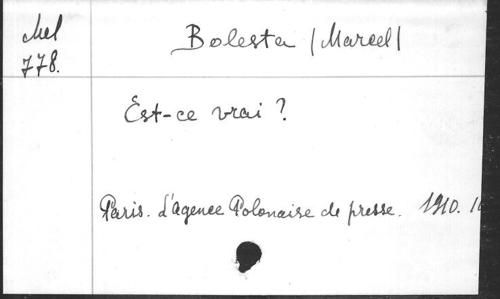 Mel
778.
Bolesta (Marcel)
Est-ce vrai ?
Paris. L'agence Polonaise de presse. 1910.